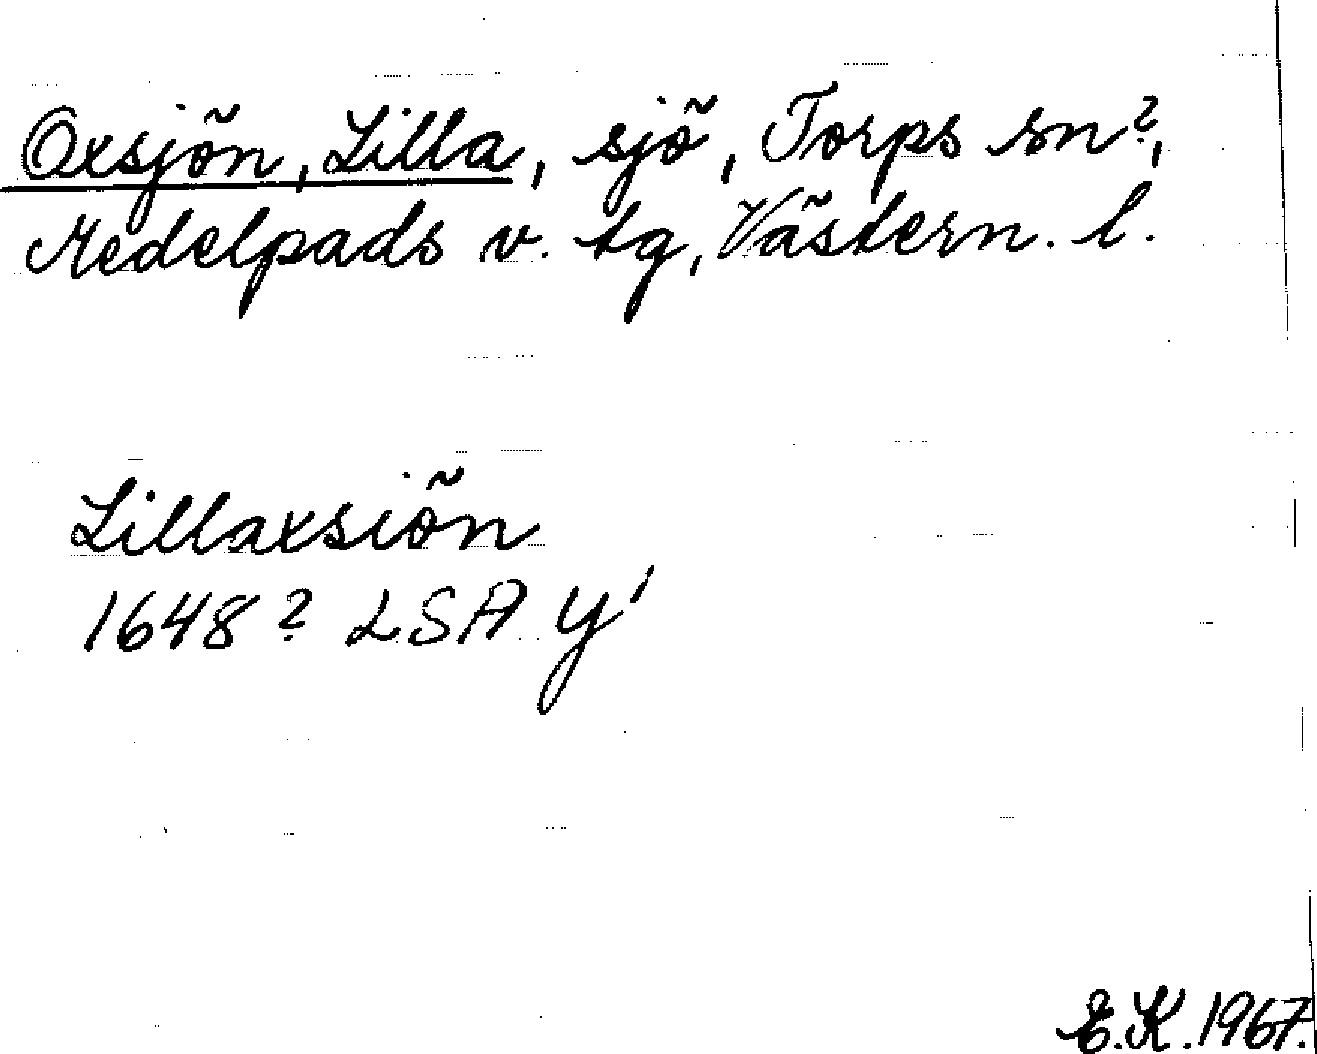 Oxsjön, Lilla, sjö, Torps sn?,
Medelpads v. tg, Västern. l.
Lillaxsiön
1648? LSA Y¹
E.K. 1967.